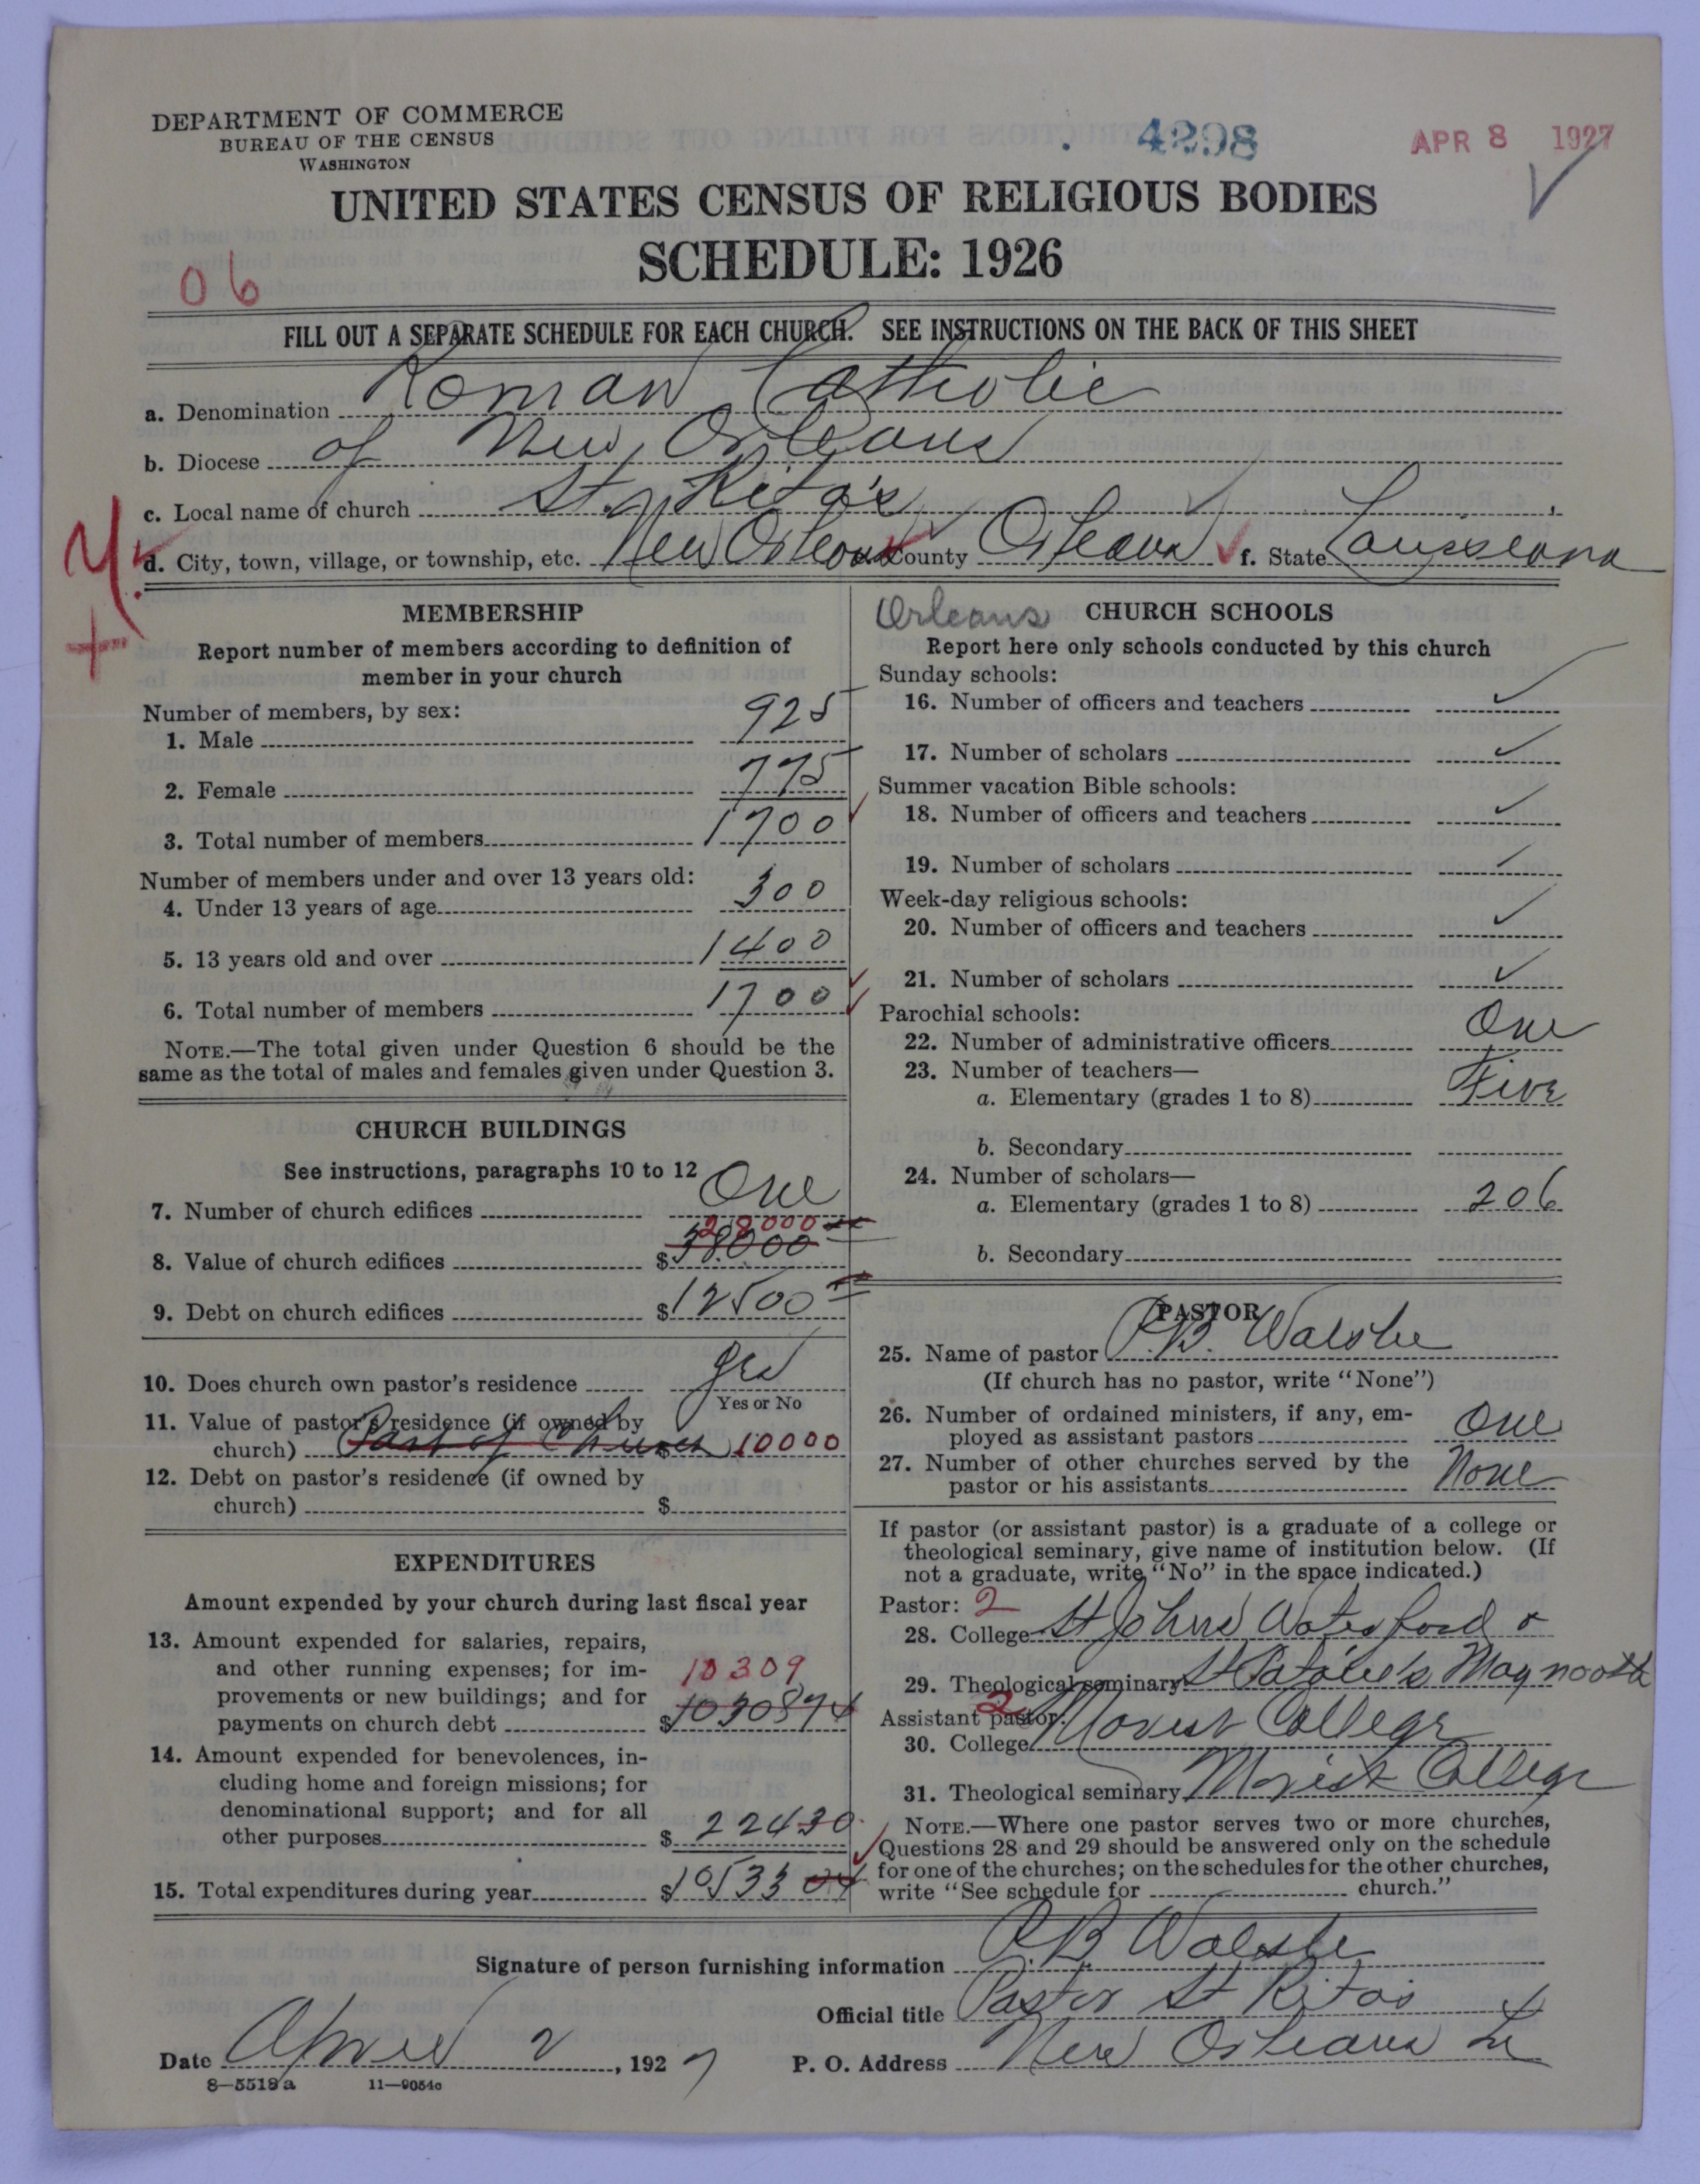 DEPARTMENT OF COMMERCE
BUREAU OF THE CENSUS
WASHINGTON
4298
APR 8 1927
UNITED STATES CENSUS OF RELIGIOUS BODIES
SCHEDULE: 1926
06
FILL OUT A SEPARATE SCHEDULE FOR EACH CHURCH. SEE INSTRUCTIONS ON THE BACK OF THIS SHEET
a. Denomination Roman Catholic
b. Diocese of New Orleans
c. Local name of church St. Rita's
d. City, town, village, or township, etc. New Orleans County Orleans f. State Louisiana
MEMBERSHIP
Report number of members according to definition of
member in your church
Number of members, by sex:
1. Male 925
2. Female 775
3. Total number of members 1700
Number of members under and over 13 years old:
4. Under 13 years of age 300
5. 13 years old and over 1400
6. Total number of members 1700
NOTE.—The total given under Question 6 should be the
same as the total of males and females given under Question 3.
CHURCH BUILDINGS
See instructions, paragraphs 10 to 12
7. Number of church edifices One
28000
8. Value of church edifices $38000
9. Debt on church edifices $12500
10. Does church own pastor's residence yes
Yes or No
11. Value of pastor's residence (if owned by
church) Part of Church $10000
12. Debt on pastor's residence (if owned by
church) $
EXPENDITURES
Amount expended by your church during last fiscal year
13. Amount expended for salaries, repairs,
and other running expenses; for im-
10309
provements or new buildings; and for
payments on church debt $1030874
14. Amount expended for benevolences, in-
cluding home and foreign missions; for
denominational support; and for all
other purposes $22430
15. Total expenditures during year $10533 04
Orleans CHURCH SCHOOLS
Report here only schools conducted by this church
Sunday schools:
16. Number of officers and teachers ✓
17. Number of scholars ✓
Summer vacation Bible schools:
18. Number of officers and teachers ✓
19. Number of scholars ✓
Week-day religious schools:
20. Number of officers and teachers ✓
21. Number of scholars ✓
Parochial schools:
22. Number of administrative officers One
23. Number of teachers—
a. Elementary (grades 1 to 8) Five
b. Secondary
24. Number of scholars—
a. Elementary (grades 1 to 8) 206
b. Secondary
PASTOR
25. Name of pastor P.B. Walshe
(If church has no pastor, write "None")
26. Number of ordained ministers, if any, em-
ployed as assistant pastors One
27. Number of other churches served by the
pastor or his assistants None
If pastor (or assistant pastor) is a graduate of a college or
theological seminary, give name of institution below. (If
not a graduate, write "No" in the space indicated.)
Pastor: 2
28. College St Johns Waterford &
29. Theological seminary St Patrick's Maynooth
Assistant pastor: 2
30. College Marist College
31. Theological seminary Marist College
NOTE.—Where one pastor serves two or more churches,
Questions 28 and 29 should be answered only on the schedule
for one of the churches; on the schedules for the other churches,
write "See schedule for church."
Signature of person furnishing information P.B. Walshe
Official title Pastor St Ritas
Date April 2, 1927 P. O. Address New Orleans La
8—5518 a 11—9054c